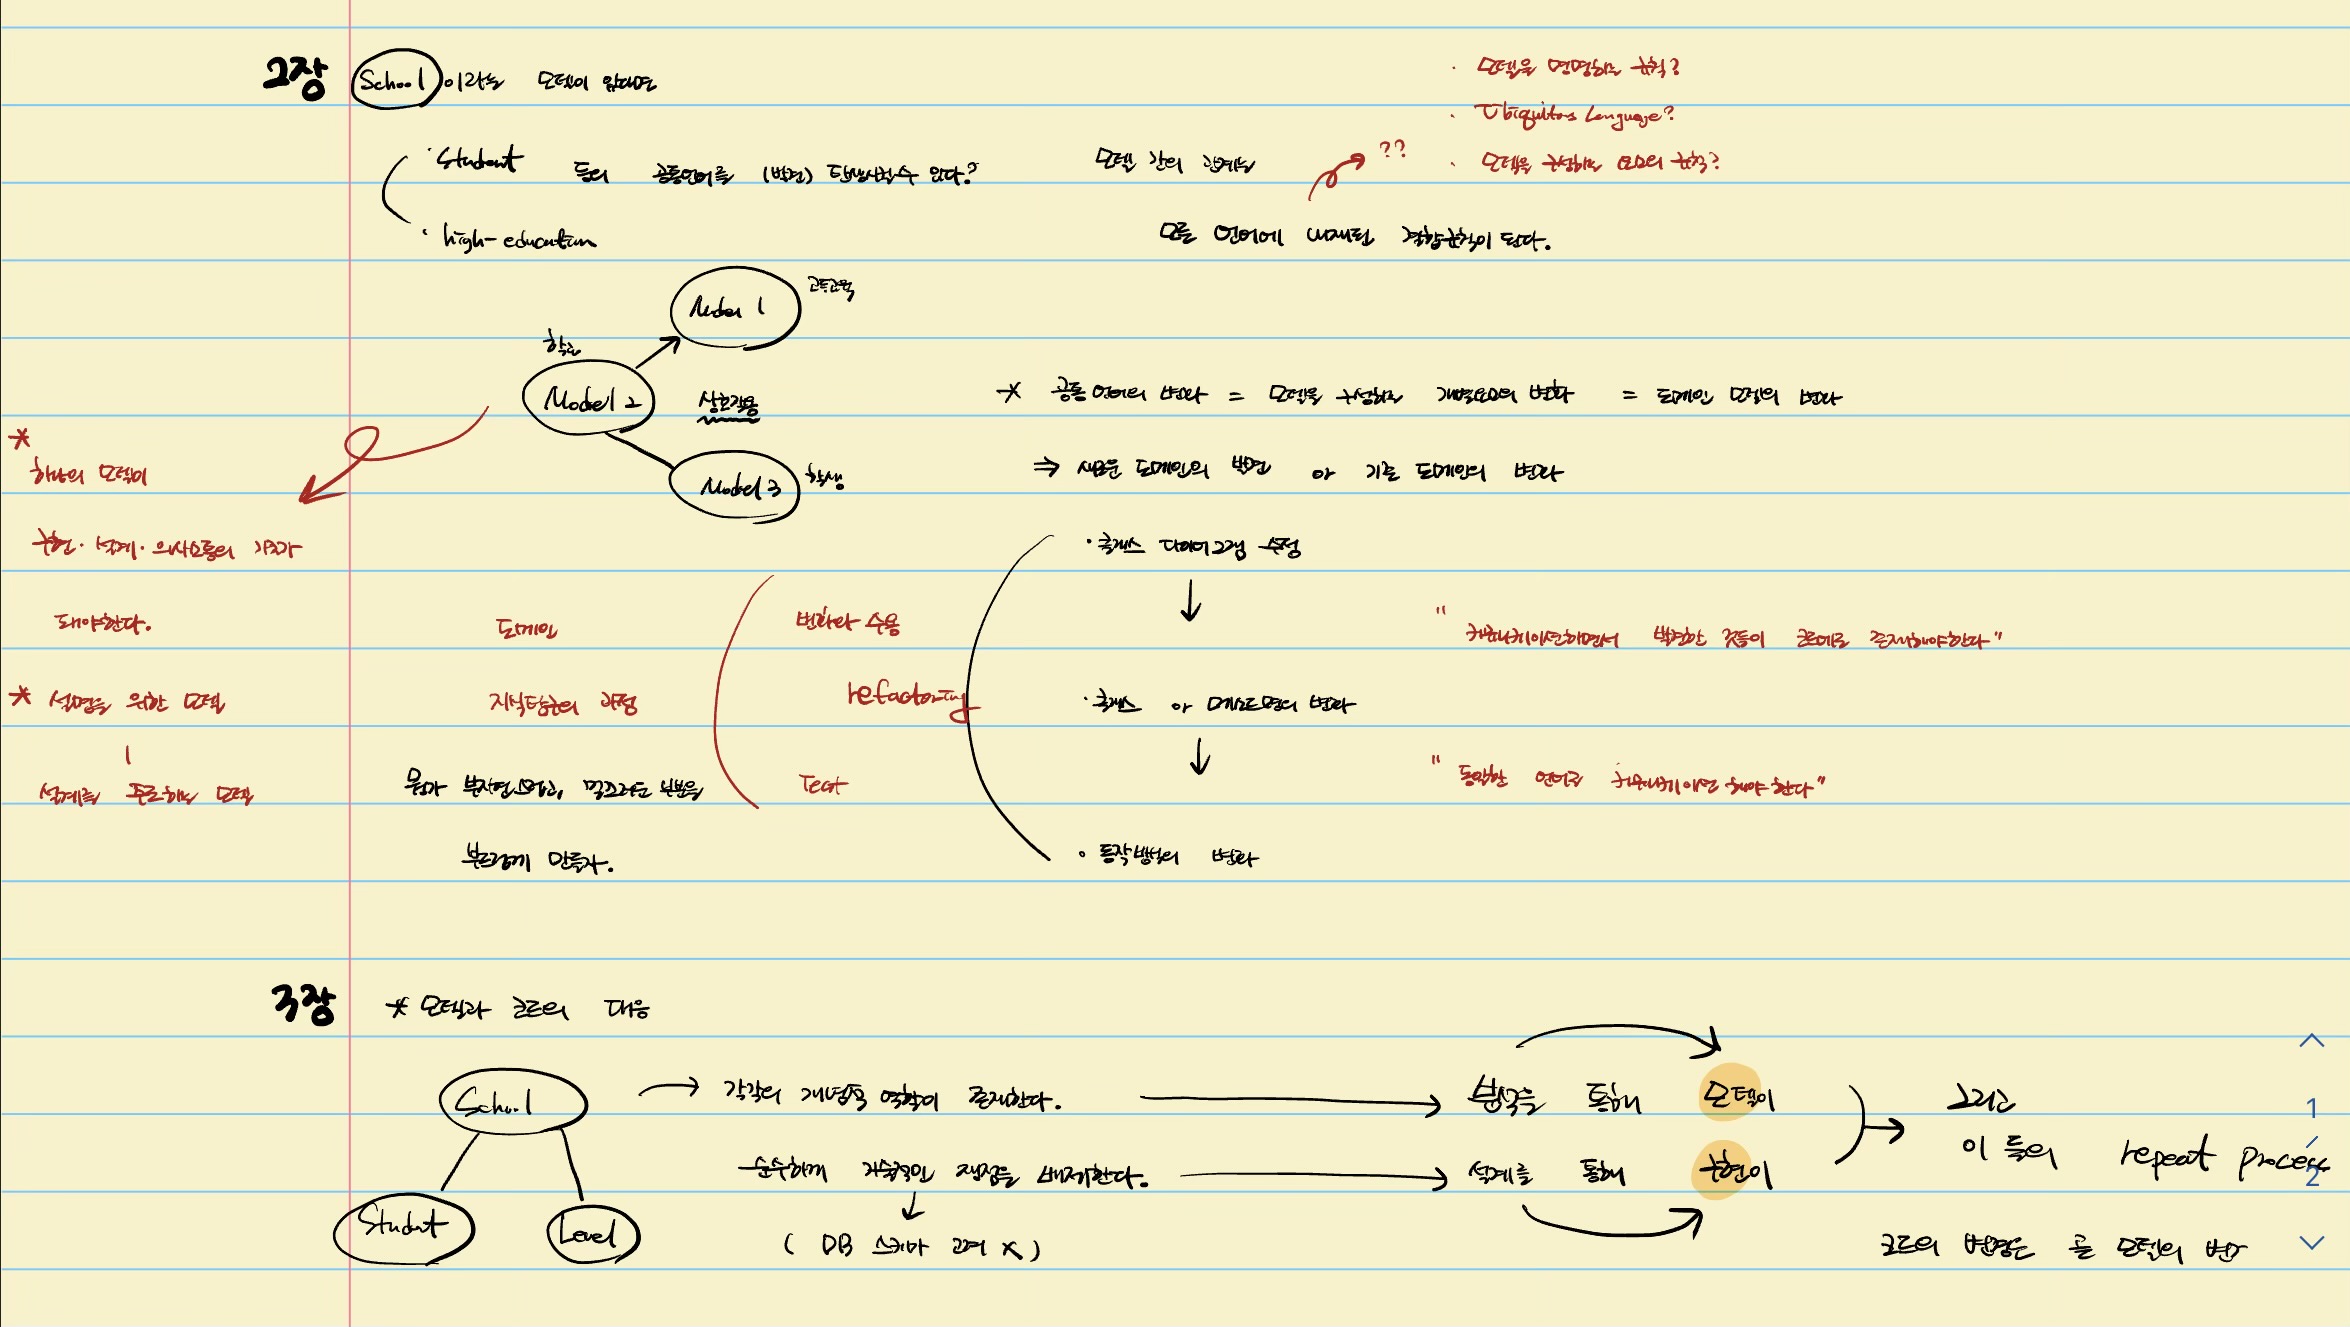 2장
School 이라는 모델이 있다면
· Student
등의 공통언어를 (발견) 탄생시킬수 있다?
· high-education
모델 간의 관계는
모든 언어에 내재된 결합규칙이 된다.
??
· 모델을 명명하는 규칙?
· Ubiquitos Language?
· 모델을 구성하는 요소의 규칙?
Model 1
고등교육
학교
Model 2
상호작용
Model 3
학생
* 공통 언어의 변화 = 모델을 구성하는 개별요소의 변화 = 도메인 모델의 변화
⇒ 새로운 도메인의 발견 or 기존 도메인의 변화
*
하나의 모델이
구현·설계·의사소통의 기초가
돼야한다.
* 설명을 위한 모델
|
설계를 주도하는 모델
도메인
지식탐구의 과정
뭔가 부자연스럽고, 껄끄러운 부분을
부드럽게 만들자.
변화와 수용
refactoring
Test
· 클래스 다이어그램 수정
↓
· 클래스 or 메소드명의 변화
↓
· 동작방식의 변화
"커뮤니케이션하면서 발견한 것들이 코드에도 존재해야한다"
"동일한 언어로 커뮤니케이션 해야 한다"
3장
* 모델과 코드의 대응
School
Student
Level
→ 각각의 개념적 역할이 존재한다. → 분석을 통해 모델이
순수하게 기술적인 쟁점을 배제한다. → 설계를 통해 구현이
↓
( DB 스키마 고려 X )
→ 그리고
이 들의 repeat process
코드의 변경은 곧 모델의 변경
1
/
2